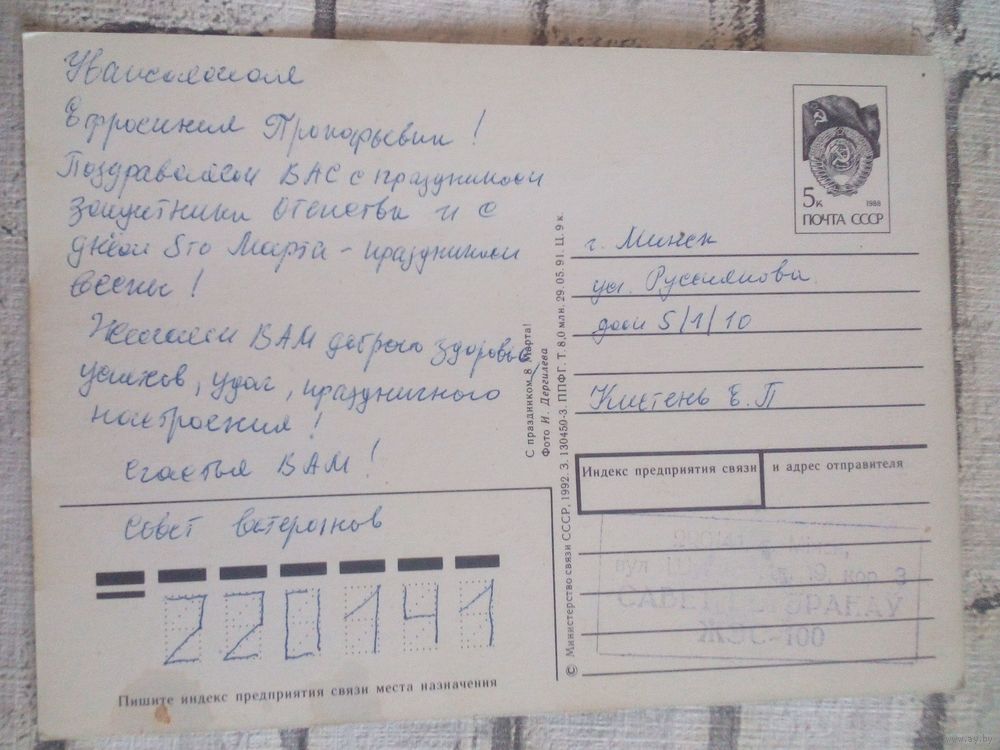 Уважаемая
Ефросиния Прокофьевна!
Поздравляем ВАС с праздником
защитника Отечества и с
днём 8го Марта - праздником
весны!
Желаем ВАМ доброго здоровья,
успехов, удач, праздничного
настроения!
Счастья ВАМ!
Совет ветеранов
220141
Пишите индекс предприятия связи места назначения
С праздником 8 Марта!
Фото И. Дергилева
© Министерство связи СССР, 1992. З. 130450-3. ППФГ. Т. 8,0 млн. 29.05.91. Ц. 9 к.
5к 1988
ПОЧТА СССР
г. Минск
ул. Руссиянова
дом 5/1/10
Кистень Е.П
Индекс предприятия связи и адрес отправителя
вул. 19 кор. 3
САВЕТ ВЕТЭРАНАЎ
ЖЭС-100
www.ay.by